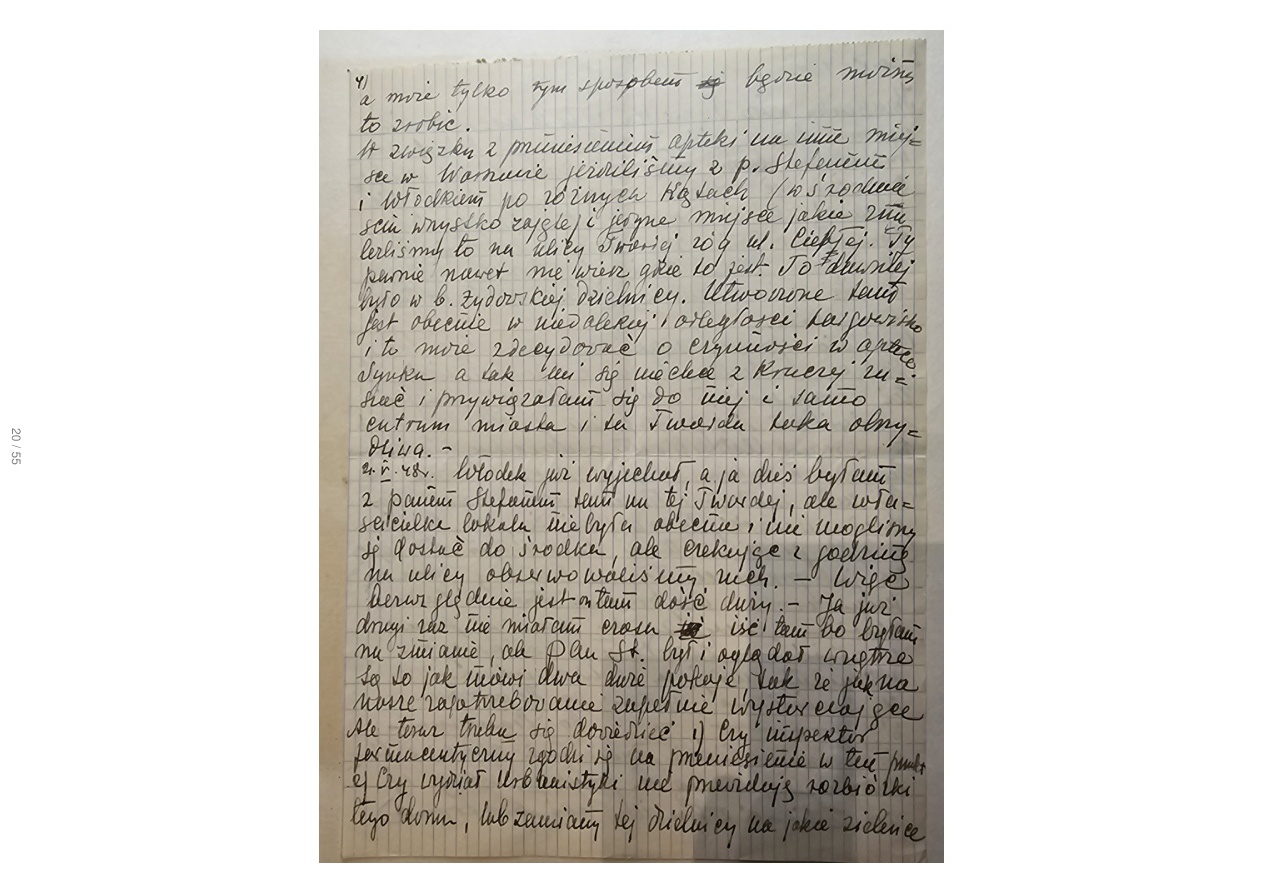 20 / 55
4)
a może tylko tym sposobem będzie można
to zrobić.
W związku z przeniesieniem apteki na inne miej=
sce w Warszawie jeździliśmy z p. Stefanem
i Włodkiem po różnych kątach (w śródmie
ściu wszystko zajęte) i jedyne miejsce jakie zna
leźliśmy to na ulicy Twardej róg ul. Ciepłej. Ty
pewnie nawet nie wiesz gdzie to jest. To dawniej
było w b. żydowskiej dzielnicy. Utworzone tam
jest obecnie w niedalekiej odległości targowisko
i to może zdecydować o czynności w aptece
Synku a tak mi się niechce z Kruczej ru=
szać i przywiązałam się do niej i samo
centrum miasta i ta Twarda taka obrzy=
dliwa. –
2. V. 48r. Włodek już wyjechał, a ja dziś byłam
z panem Stefanem tam na tej Twardej, ale wła=
ścicielka lokalu niebyła obecna i nie mogliśmy
się dostać do środka, ale czekając z godzinę
na ulicy obserwowaliśmy ruch. – Więc
bezwzględnie jest on tam dość duży. – Ja już
drugi raz nie miałam czasu iść tam bo byłam
na zmianie, ale Pan St. był i oglądał wnętrze
Są to jak mówi dwa duże pokoje, tak że jak na
nasze zapotrzebowanie zupełnie wystarczające
Ale teraz trzeba się dowiedzieć 1) Czy inspektor
farmaceutyczny zgodzi się na przeniesienie w ten punkt
2) Czy wydział Urbanistyki nie przewidują rozbiórki
tego domu, lub zamiany tej dzielnicy na jakie zieleńce